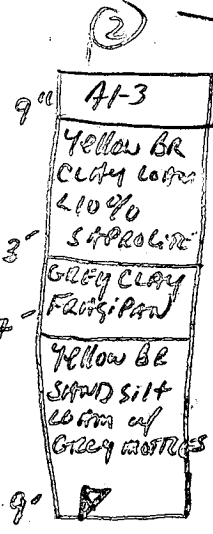 2
9" A1-3
Yellow BR
CLAY LOAM
<10%
SAPROLITE
3'
GREY CLAY
FRAGIPAN
7'
Yellow BR
SAND SILT
LOAM w/
GREY MOTTLES
9'